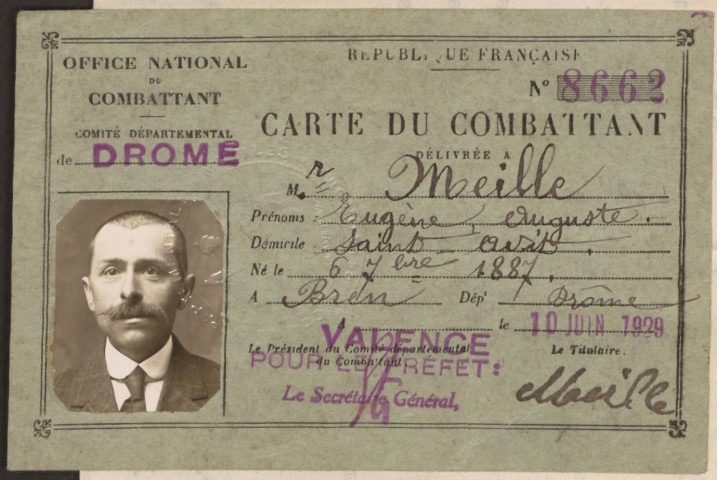 OFFICE NATIONAL
DU
COMBATTANT
COMITÉ DÉPARTEMENTAL
de DROME
RÉPUBLIQUE FRANÇAISE
N° 8662
CARTE DU COMBATTANT
DÉLIVRÉE A
M. r Meille
Prénoms : Eugène, Auguste.
Domicile Saint Avit.
Né le 6 7bre 1887.
A Bren Dépt Drôme
A VALENCE le 10 JUIN 1929
Le Président du Comité départemental
du Combattant
Le Titulaire.
POUR LE PRÉFET:
Le Secrétaire Général,
Meille